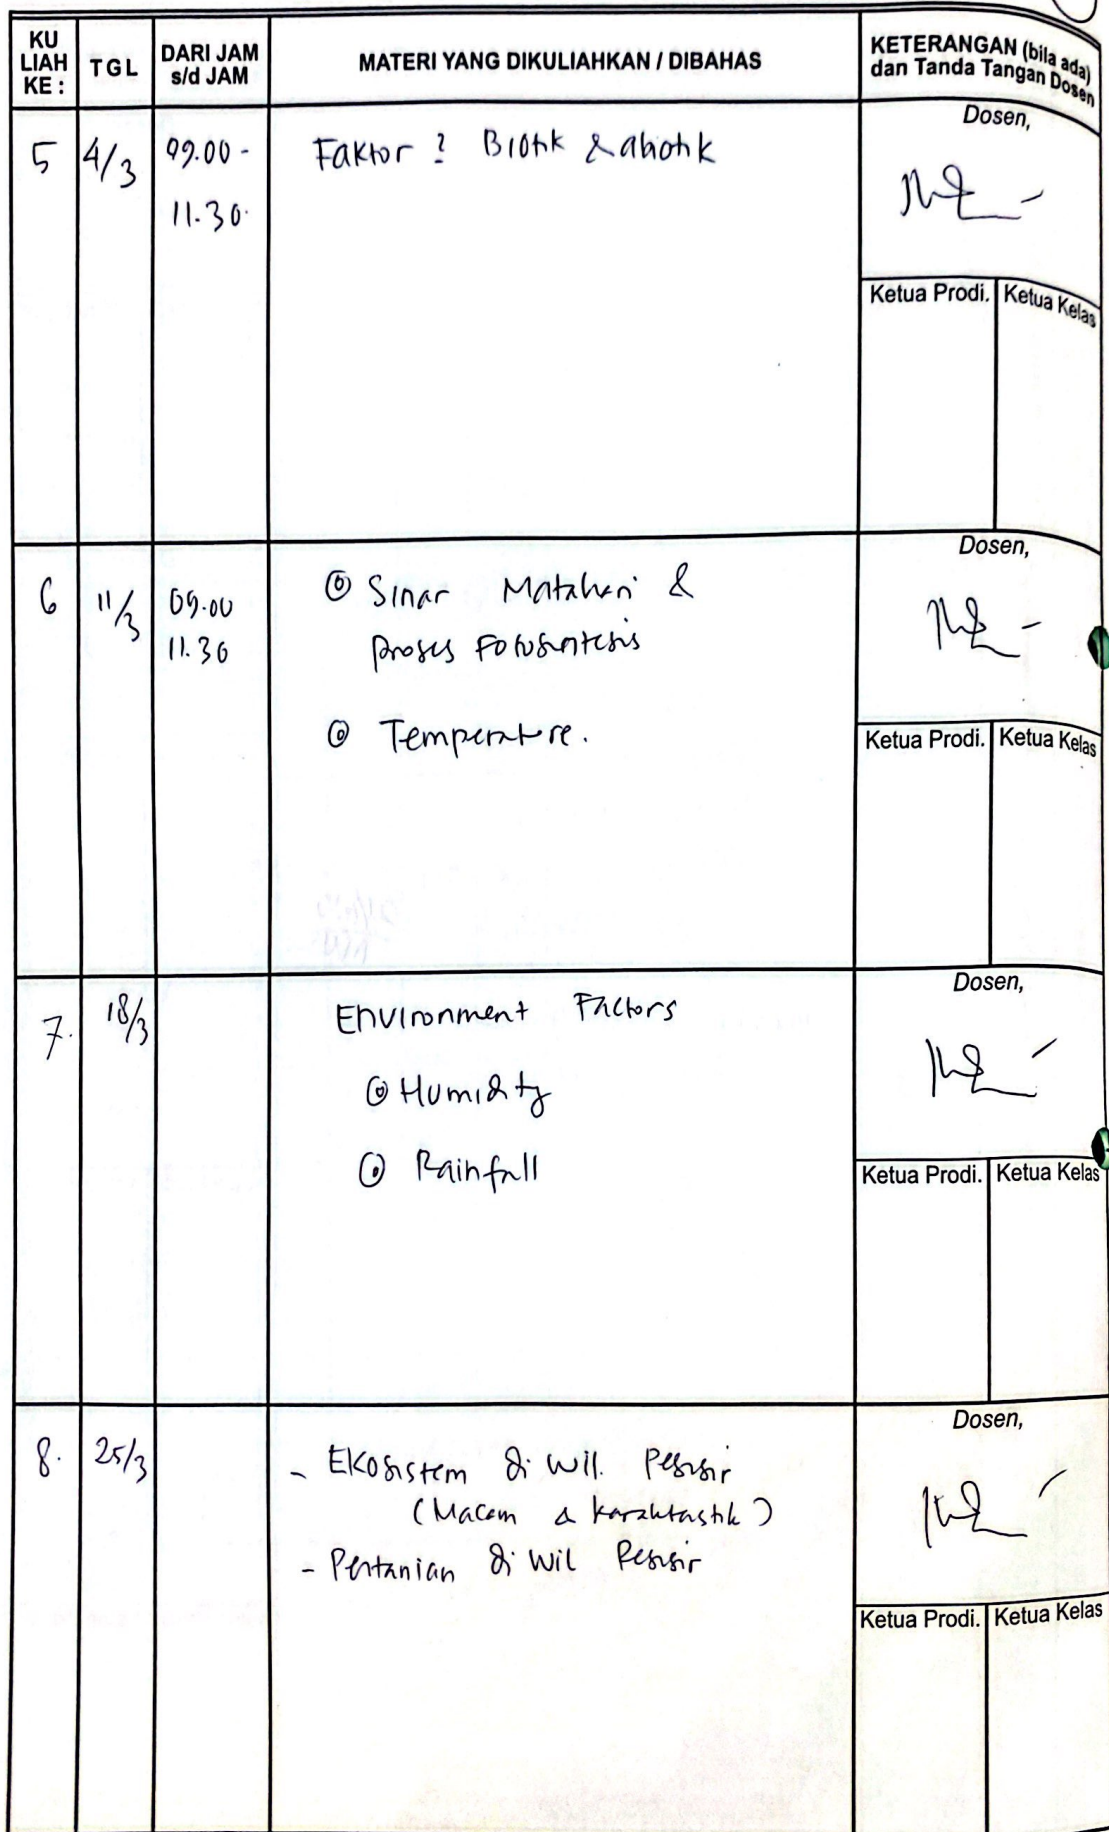 KU LIAH KE :
TGL
DARI JAM s/d JAM
MATERI YANG DIKULIAHKAN / DIBAHAS
KETERANGAN (bila ada) dan Tanda Tangan Dosen
5
4/3
09.00 -
11.30
Faktor ? Biotik & abiotik
Dosen,
Ketua Prodi.
Ketua Kelas
6
11/3
09.00
11.30
Sinar Matahari &
proses Fotosintesis
Temperature.
Dosen,
Ketua Prodi.
Ketua Kelas
7.
18/3
Environment Factors
Humidity
Rainfall
Dosen,
Ketua Prodi.
Ketua Kelas
8.
25/3
- Ekosistem di wil. Pesisir
(Macam & karaktastik)
- Pertanian di wil Pesisir
Dosen,
Ketua Prodi.
Ketua Kelas